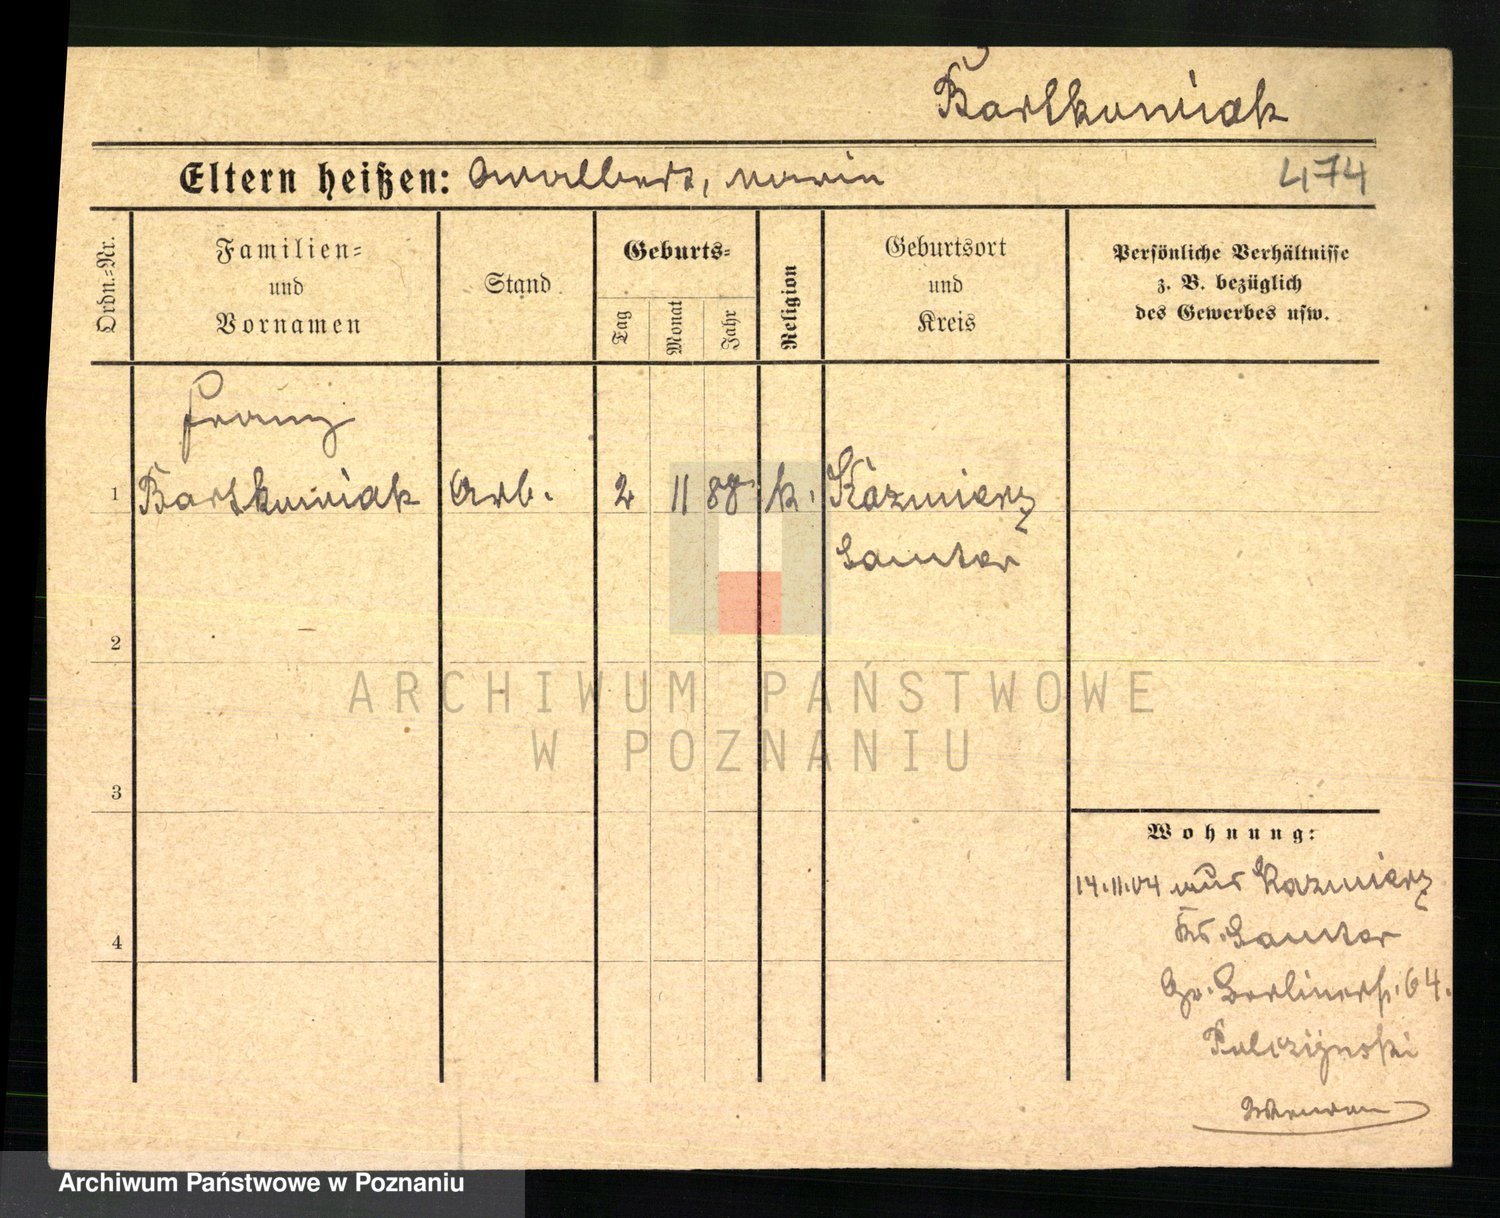 Bartkowiak
Eltern heißen: Adalbert, Marie
474
Ordn.-Nr.
Familien-
und
Vornamen
Stand
Geburts-
Tag
Monat
Jahr
Religion
Geburtsort
und
Kreis
Persönliche Verhältnisse
z. B. bezüglich
des Gewerbes usw.
Franz
1 Bartkowiak Arb. 2 11 88. k. Kazmierz
Samter
2
3
4
ARCHIWUM PAŃSTWOWE
W POZNANIU
Wohnung:
14.11.04 aus Kazmierz
Kr. Samter
Gr. Berlinerst. 64.
Archiwum Państwowe w Poznaniu